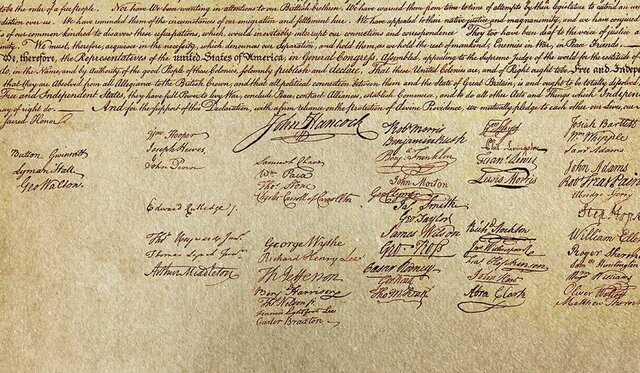 to be the ruler of a free people. Nor have We been wanting in attentions to our Brittish brethren. We have warned them from time to time of attempts by their legislature to extend an
us. We have reminded them of the circumstances of our emigration and settlement here. We have appealed to their native justice and magnanimity, and we have conjured
of our common kindred to disavow these usurpations, which, would inevitably interrupt our connections and correspondence. They too have been deaf to the voice of justice
We must, therefore, acquiesce in the necessity, which denounces our Separation, and hold them, as we hold the rest of mankind, Enemies in War, in Peace Friends.
We, therefore, the Representatives of the united States of America, in General Congress, Assembled, appealing to the Supreme Judge of the world for the rectitude of
do, in the Name, and by Authority of the good People of these Colonies, solemnly publish and declare, That these United Colonies are, and of Right ought to be Free and Independent
that they are Absolved from all Allegiance to the British Crown, and that all political connection between them and the State of Great Britain, is and ought to be totally
Free and Independent States, they have full Power to levy War, conclude Peace, contract Alliances, establish Commerce, and to do all other Acts and Things which Independent
of right do. And for the support of this Declaration, with a firm reliance on the protection of divine Providence, we mutually pledge to each other our Lives, our
sacred Honor.
Button Gwinnett
Lyman Hall
Geo Walton.
Wm Hooper
Joseph Hewes,
John Penn
Edward Rutledge
Thos Heyward Junr.
Thomas Lynch Junr.
Arthur Middleton
John Hancock
Samuel Chase
Wm Paca
Thos Stone
Charles Carroll of Carrollton
George Wythe
Richard Henry Lee
Th Jefferson
Benj Harrison
Thos Nelson jr.
Francis Lightfoot Lee
Carter Braxton
Robt Morris
Benjamin Rush
Benj Franklin
John Morton
Geo Clymer
Jas Smith
Geo Taylor
James Wilson
Geo Ross
Caesar Rodney
Geo Read
Tho M:Kean
Wm Floyd
Phil. Livingston
Lewis Morris
Richd Stockton
Jno Witherspoon
Fras Hopkinson
John Hart
Abra Clark
Josiah Bartlett
Wm Whipple
Saml Adams
John Adams
Robt Treat Paine
Elbridge Gerry
Step Hop
William Ellery
Roger Sherman
Saml Huntington
Wm Williams
Oliver Wolcott
Matthew Thornton